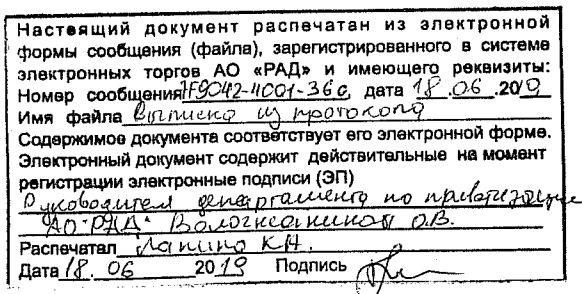 Настоящий документ распечатан из электронной
формы сообщения (файла), зарегистрированного в системе
электронных торгов АО «РАД» и имеющего реквизиты:
Номер сообщения 79042-4001-36с, дата 18.06.2019
Имя файла Выписка из протокола
Содержимое документа соответствует его электронной форме.
Электронный документ содержит действительные на момент
регистрации электронные подписи (ЭП)
Руководителя департамента по приватизации
АО "РАД" О.В.
Распечатал Лапина К.А.
Дата 18. 06 2019 Подпись